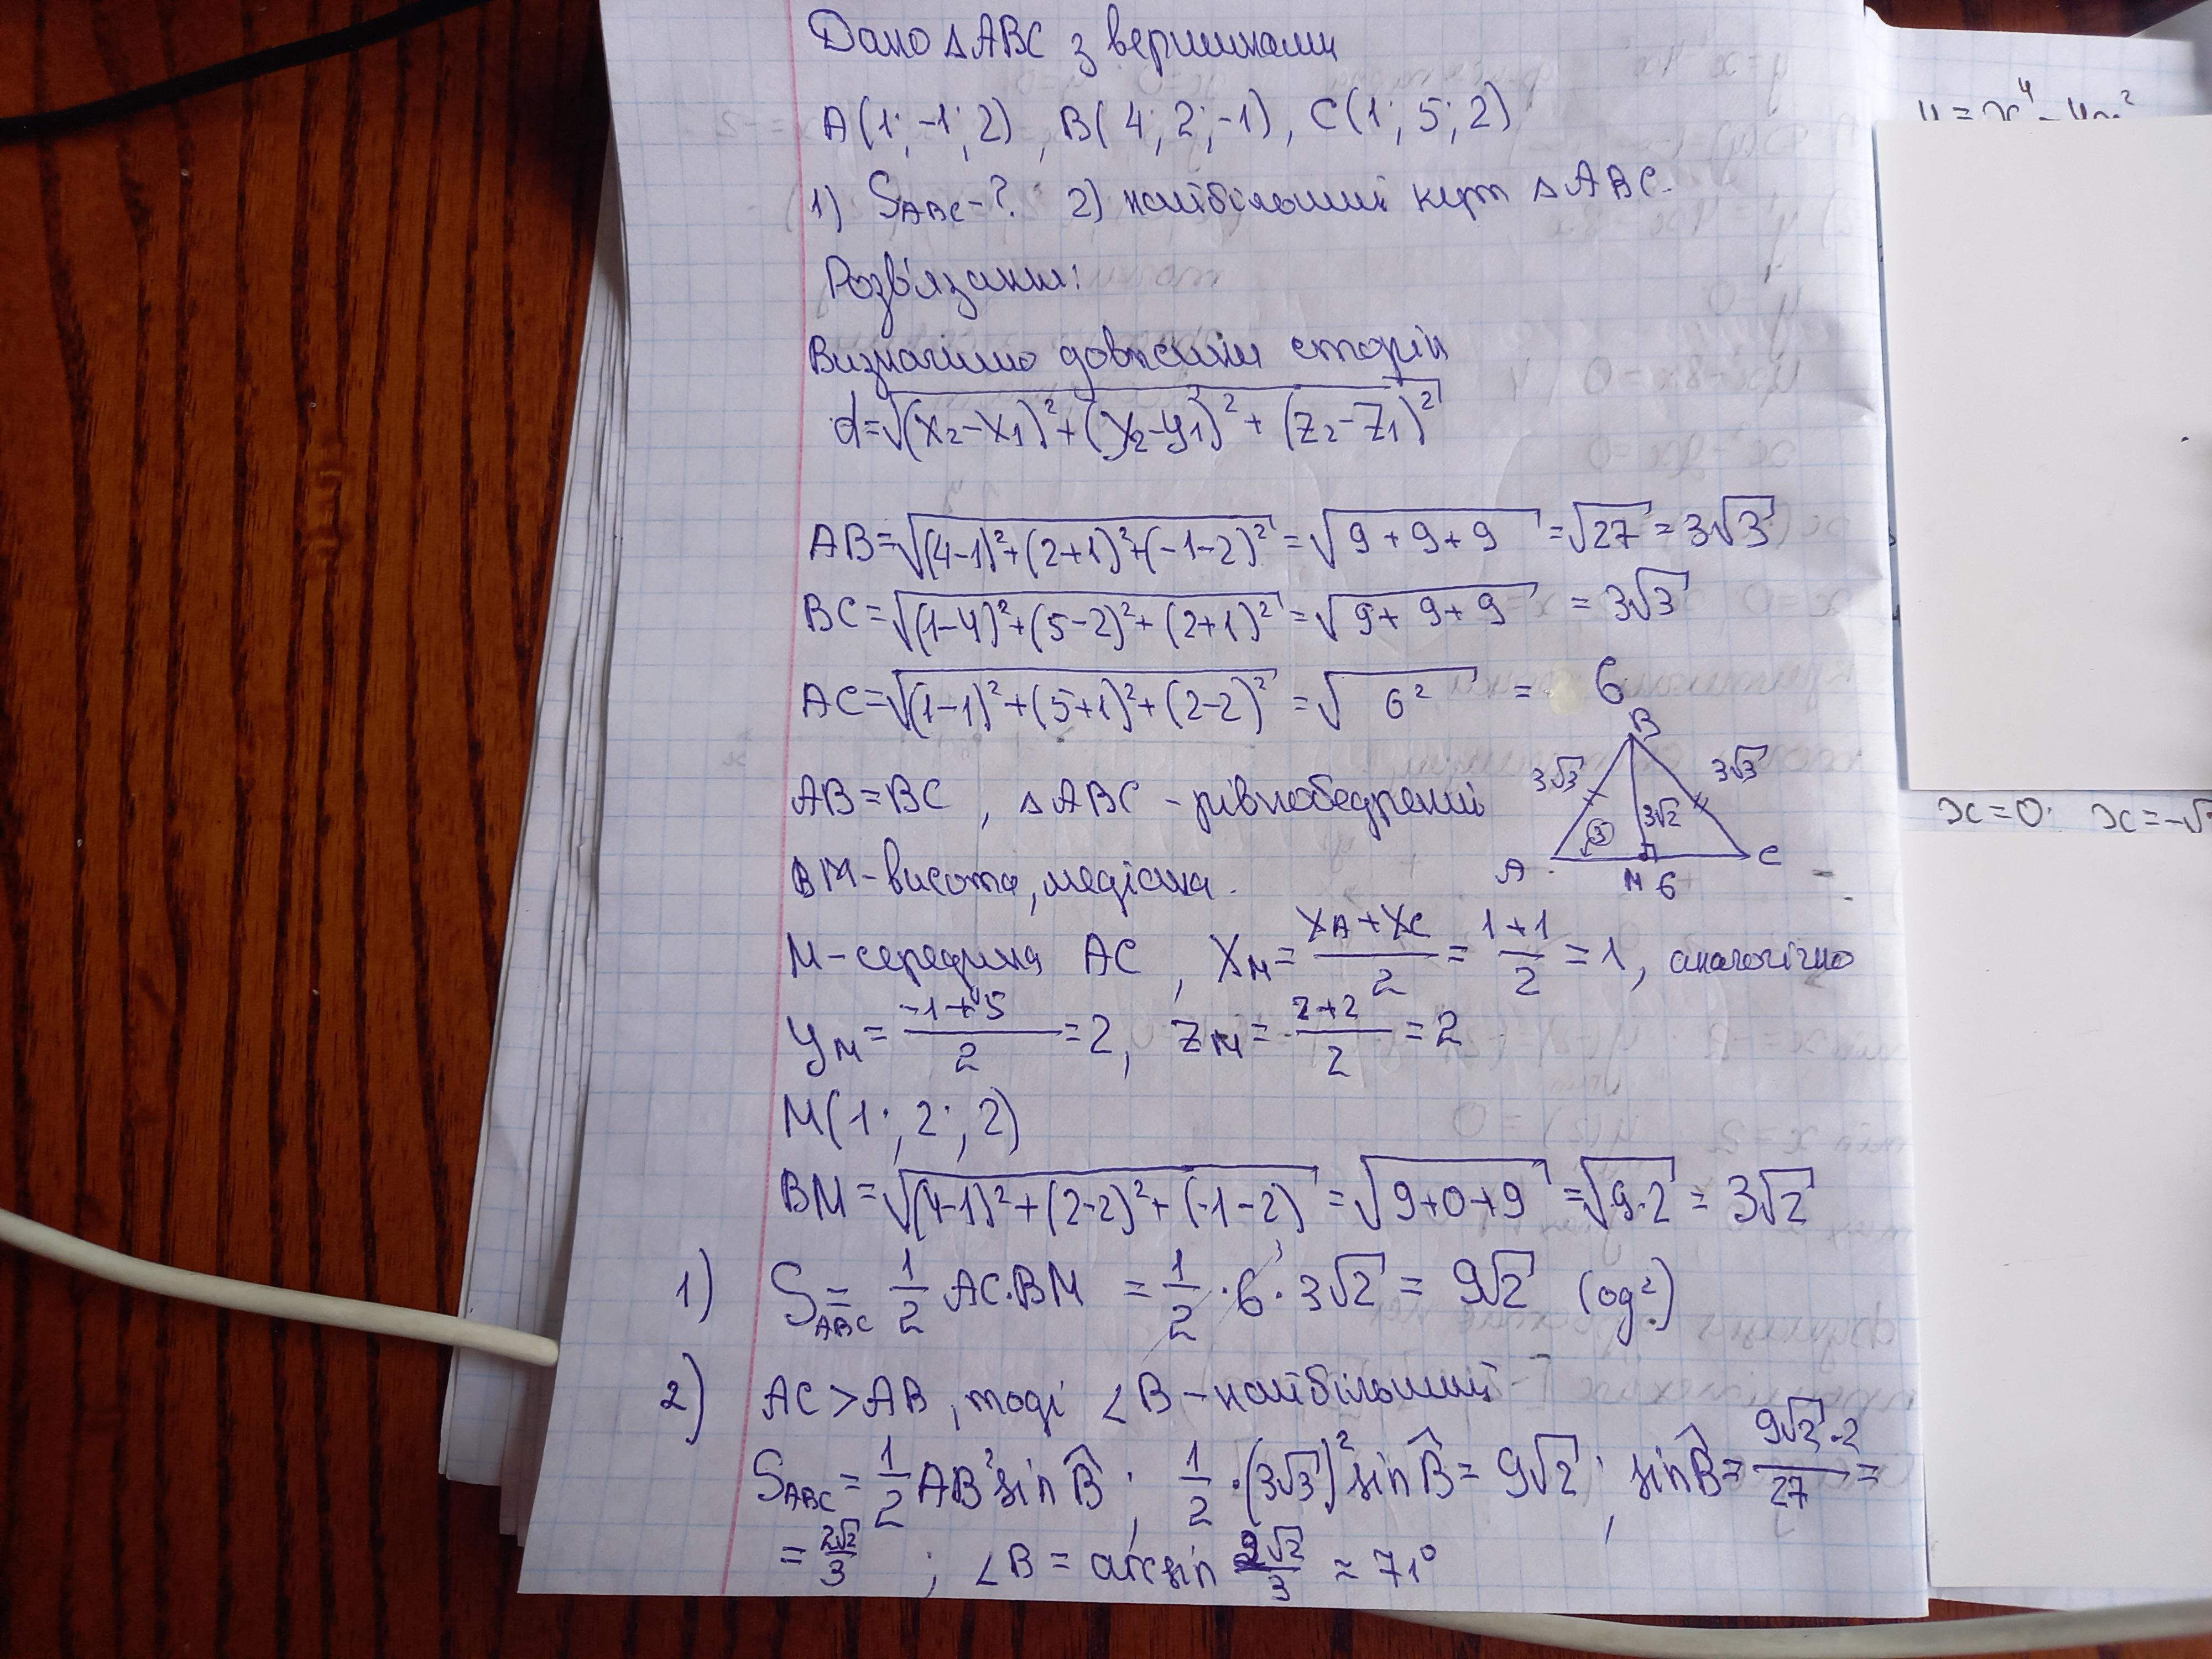 Дано △ABC з вершинами
A(1; -1; 2), B(4; 2; -1), C(1; 5; 2)
1) S_ABC - ? 2) найбільший кут △ABC.
Розв'язання:
Визначимо довжини сторін
d=√((x₂-x₁)²+(y₂-y₁)²+(z₂-z₁)²)
AB=√((4-1)²+(2+1)²+(-1-2)²)=√(9+9+9)=√27=3√3
BC=√((1-4)²+(5-2)²+(2+1)²)=√(9+9+9)=3√3
AC=√((1-1)²+(5+1)²+(2-2)²)=√(6²)=6
B
3√3 3√3
3√2
3
A M 6 C
AB=BC, △ABC - рівнобедрений
BM - висота, медіана.
M - середина AC, X_M=(X_A+X_C)/2=(1+1)/2=1, аналогічно
y_M=(-1+5)/2=2, z_M=(2+2)/2=2
M(1; 2; 2)
BM=√((4-1)²+(2-2)²+(-1-2))=√(9+0+9)=√(9·2)=3√2
1) S_ABC=1/2 AC·BM=1/2·6·3√2=9√2 (од²)
2) AC>AB, тоді ∠B - найбільший
S_ABC=1/2 AB² sin B̂; 1/2·(3√3)² sin B̂=9√2; sin B̂=(9√2·2)/27=
=2√2/3; ∠B=arcsin 2√2/3≈71°
y=x⁴-4x²
x=0; x=-√